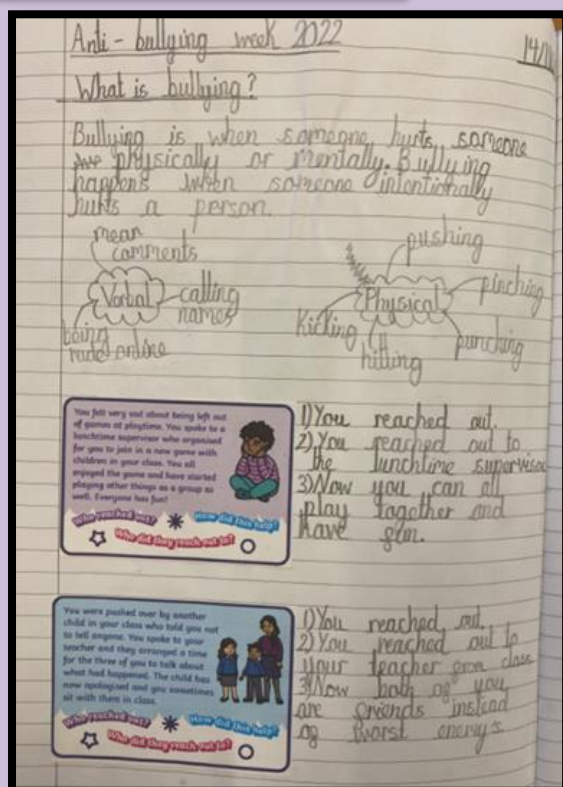 Anti-bullying week 2022
What is bullying?
Bullying is when someone hurts someone
physically or mentally. Bullying
happens when someone intentionally
hurts a person.
mean
comments
Verbal
calling
names
being
rude online
pushing
Physical
pinching
kicking
hitting
punching
You felt very sad about being left out
of games at playtime. You spoke to a
lunchtime supervisor who organised
for you to join in a new game with
children in your class. You all
enjoyed the game and have started
playing other things as a group as
well. Everyone has fun!
Who reached out?
How did this help?
Who did they reach out to?
1) You reached out.
2) You reached out to
the lunchtime supervisor
3) Now you can all
play together and
have fun.
You were pushed over by another
child in your class who told you not
to tell anyone. You spoke to your
teacher and they arranged a time
for the three of you to talk about
what had happened. The child has
now apologised and you sometimes
sit with them in class.
Who reached out?
How did this help?
Who did they reach out to?
1) You reached out.
2) You reached out to
your teacher class
3) Now both of you
are friends instead
of worst enemys